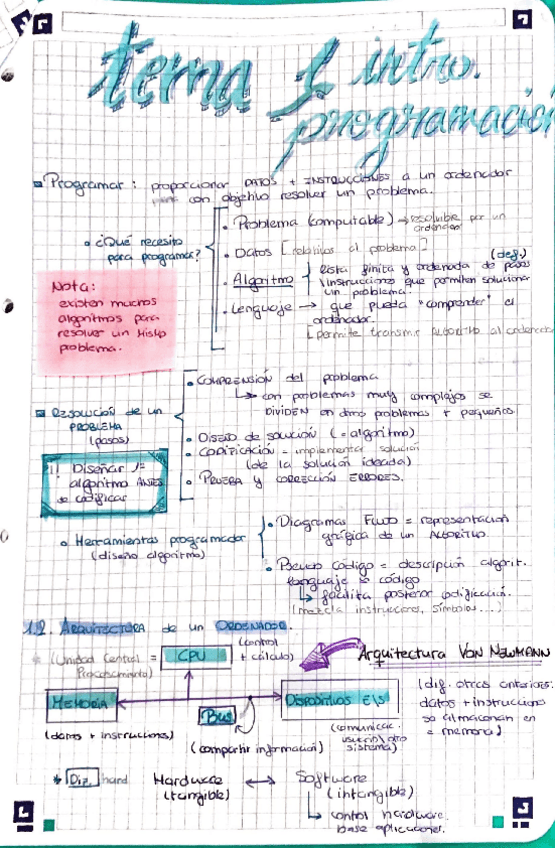 tema 1 intro.
programación
Programar: proporcionar DATOS + INSTRUCCIONES a un ordenador
con objetivo resolver un problema.
¿Qué necesito
para programar?
Problema (computable) → resoluble por un
ordenador
Datos [relativos al problema]
(def.)
Algoritmo
lista finita y ordenada de pasos
\instrucciones que permiten solucionar
un problema.
Lenguaje → que pueda "comprender" el
ordenador.
[permite transmitir ALGORITMO al ordenador
Nota:
existen muchos
algoritmos para
resolver un MISMO
problema.
RESOLUCIÓN de un
PROBLEMA
(pasos)
COMPRENSIÓN del problema
↳ con problemas muy complejos se
DIVIDEN en otros problemas + pequeños
DISEÑO de solución (= algoritmo)
CODIFICACIÓN = implementar solución
(de la solución ideada)
PRUEBA y CORRECCIÓN ERRORES.
!! Diseñar 1º
algoritmo ANTES
se codificar
Herramientas programador
(diseño algoritmo)
Diagramas FLUJO = representación
gráfica de un ALGORITMO.
Pseudo código = descripción algorit.
lenguaje código
↳ facilita posterior codificación.
(mezcla instrucciones, símbolos...)
1.2. ARQUITECTURA de un ORDENADOR.
* (Unidad Central =
Procesamiento)
CPU
(control
+ cálculo)
Arquitectura VON NEWMANN
MEMORIA
(datos + instrucciones)
Bus
(compartir información)
DISPOSITIVOS E\S
(comunicac.
usuario\otro
sistema)
(dif. otras anteriores:
datos + instrucciones
se almacenan en
= memoria)
* Dif. hard
Hardware ↔ Software
(tangible)
(intangible)
↳ control hardware.
base aplicaciones.